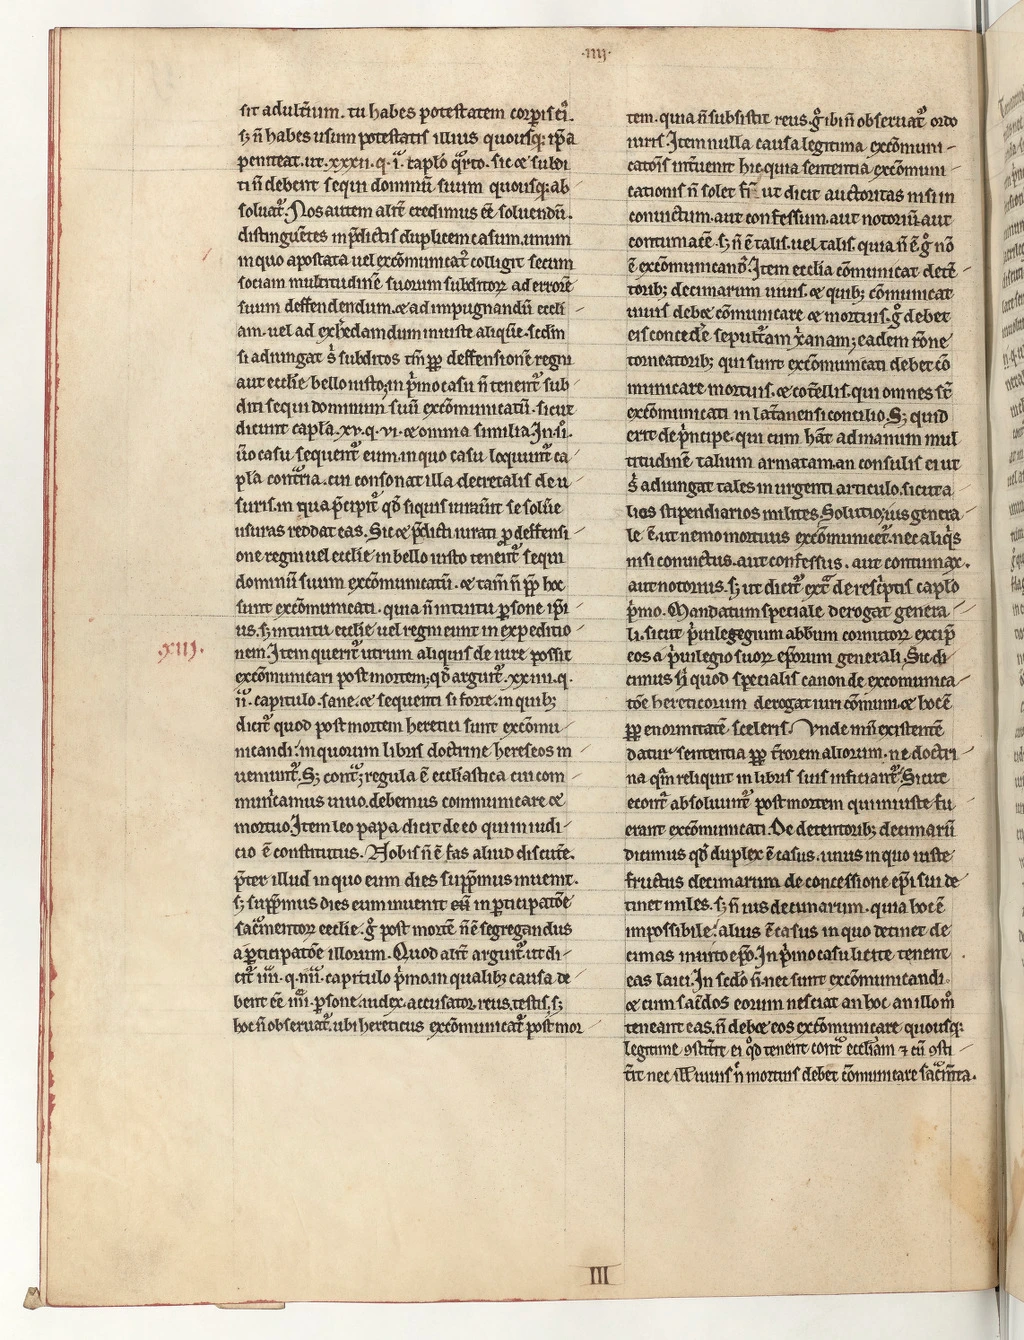 ·iiij·
sit adult̃ium. tu habes potestatem corꝑis ei᷒.
sꝫ ñ habes usum potestatis illius quousqꝫ ip̃a
peniteat. ut .xxxii. q. i. capl̃o q̃rto. sic ⁊ subdi
ti ñ debent sequi dominũ suum quousqꝫ ab
soluat᷑. Nos autem alit̃ credimus ẽe soluendũ.
distinguẽtes in p̃dictis duplicem casum. unum
in quo apostata uel excõmunicat᷒ colligit secum
sociam multitudinẽ suorum subditoꝝ ad errorẽ
suum deffendendum. ⁊ ad impugnandũ eccli
am. uel ad exh̃edandum iniuste aliquẽ. scd̃m
si adiungat s̉ subditos tm̃ ꝓp̃ deffensionẽ regni
aut eccl̃ie bello iusto; in p̃mo casu ñ tenent᷑ sub
diti sequi dominum suũ excõmunicatũ. sicut
dicunt capl̃a .xv. q. vi. ⁊ omnia similia. In .ii.
ũo casu sequent᷑ eum. in quo casu loquunt᷑ ca
pl̃a cont̃ria. cui consonat illa decretalis de u
suris. in qua p̃cipit᷑ qđ si quis iurau̾it se solu̾e
usuras reddat eas. Sic ⁊ p̃dicti iurati ꝓ deffensi
one regni uel eccl̃ie in bello iusto tenent᷑ sequi
dominũ suum excõmunicatũ. ⁊ tam̃ ñ ꝓp̃ hoc
sunt excõmunicati. quia ñ intuitu ꝑsone ip̃i
us. sꝫ intuitu eccl̃ie uel regni eunt in expeditio
.xiij.
nem. Item querit᷑ utrum aliquis de iure possit
excõmunicari post mortem; qđ arguit᷑ .xxiiii. q.
ii. capitulo. sane. ⁊ sequenti si forte. in quibꝫ
dicit᷑ quod post mortem heretici sunt excõmu
nicandi. in quorum libris doctrine hereseos in
ueniunt᷑. Sꝫ cont̃; regula ẽ eccl̃iastica cui com
municamus uiuo. debemus communicare ⁊
mortuo. Item leo papa dicit de eo qui in iudi
cio ẽ constitutus. Nobis ñ ẽ fas aliud discut̾e.
p̃ter illud in quo eum dies sup̃mus inuenit.
sꝫ sup̃mus dies eum inuenit in ꝑticipatõe
sac̃mentoꝝ eccl̃ie. g̊ post mortẽ ñ ẽ segregandus
a ꝑticipatõe illorum. Quod alit̃ arguit᷑. ut di
cit᷑ .iiii. q. iiii. capitulo p̃mo. in qualibꝫ causa de
bent ẽe .iiii. ꝑsone. iudex. accusator. reus. testis. sꝫ
hoc ñ obseruat᷑. ubi hereticus excõmunicat᷑ post mor
tem. quia ñ subsistit reus. g̊ ibi ñ obseruat᷑ ordo
iuris. Item nulla causa legitima excõmuni
catõis int̃uenit hic. quia sententia excõmuni
cationis ñ solet fi̾ ut dicit auctoritas nisi in
conuictum. aut confessum. aut notoriũ. aut
contumacẽ. sꝫ ñ ẽ talis. uel talis. quia ñ ẽ. g̊ nõ
ẽ excõmunicand᷒. Item eccl̃ia cõmunicat detẽ
toribꝫ decimarum uiuis. ⁊ quibꝫ cõmunicat
uiuis debet cõmunicare ⁊ mortuis. g̊ debet
eis conced̾e sepult̃am x̃anam; eadem rõne
torneatoribꝫ qui sunt excõmunicati debet cõ
municare mortuis. ⁊ cot̾ellis. qui omnes st̃
excõmunicati in lat̾anensi concilio. Sꝫ quid
erit de p̃ncipe. qui cum h̃at ad manum mul
titudinẽ talium armatam. an consulis ei ut
s̉ adiungat tales in urgenti articulo. sicut a
lios stipendiarios milites. Solutio; ius genera
le ẽ. ut nemo mortuus excõmunicet᷑. nec aliq̃s
nisi conuictus. aut confessus. aut contumax.
aut notorius. sꝫ ut dicit᷑ ext̃ de resc̃ptis capl̃o
p̃mo. Mandatum speciale derogat genera
li. sicut p̃uilegegium abb̃um comitoꝝ excip̃
eos a p̃uilegio suoꝝ ep̃orum generali. Sic di
cimus sꝫ quod specialis canon de excomunica
tõe hereticorum derogat iuri cõmuni. ⁊ hoc ẽ
ꝓp̃ enormitatẽ sceleris. Vnde in ñ existentẽ
datur sententia ꝓp̃ t̾rorem aliorum. ne doctri
na qm̃ reliquit in libris suis inficiant᷑. Sicut
econt̃ absoluunt᷑ post mortem qui iniuste fu
erant excõmunicati. De detentoribꝫ decimarũ
dicimus qđ duplex ẽ casus. unus in quo iuste
fructus decimarum de concessione ep̃i sui de
tinet miles. sꝫ ñ ius decimarum. quia hoc ẽ
impossibile. alius ẽ casus in quo detinet de
cimas inuito ep̃o. In p̃mo casu licite tenent
eas laici. In sc̃do ñ. nec sunt excõmunicandi.
⁊ cum sac̾dos eorum nesciat an hoc an illo mõ
teneant eas. ñ debet eos excõmunicare quousqꝫ
legitime ꝯstit̾it ei qđ tenent cont̃ eccl̃iam ⁊ cũ ꝯsti
t̾it nec ill̃ uiuis ñ mortuis debet cõmunicare sac̃m̃ta.
III